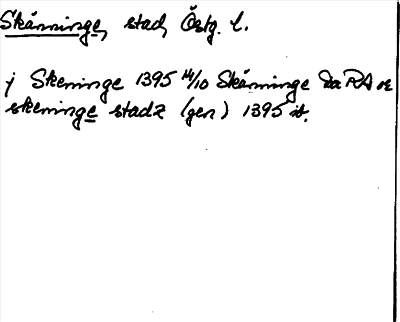 Skänninge, stad, Östg. l.
j Skeninge 1395 14/10 Skänninge Da RA or
skeninge stadz (gen) 1395 ib.